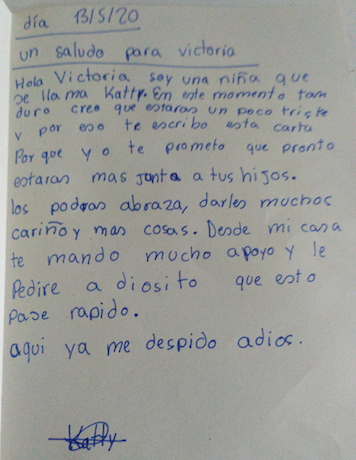 día 13/5/20
un saludo para victoria
Hola Victoria soy una niña que
se llama Katty. En este momento tan
duro creo que estaras un poco triste
y por eso te escribo esta carta
Por que yo te prometo que pronto
estaras mas junta a tus hijos.
los podras abraza, darles muchos
cariño y mas cosas. Desde mi casa
te mando mucho apoyo y le
Pedire a diosito que esto
Pase rapido.
aqui ya me despido adios.
Katty